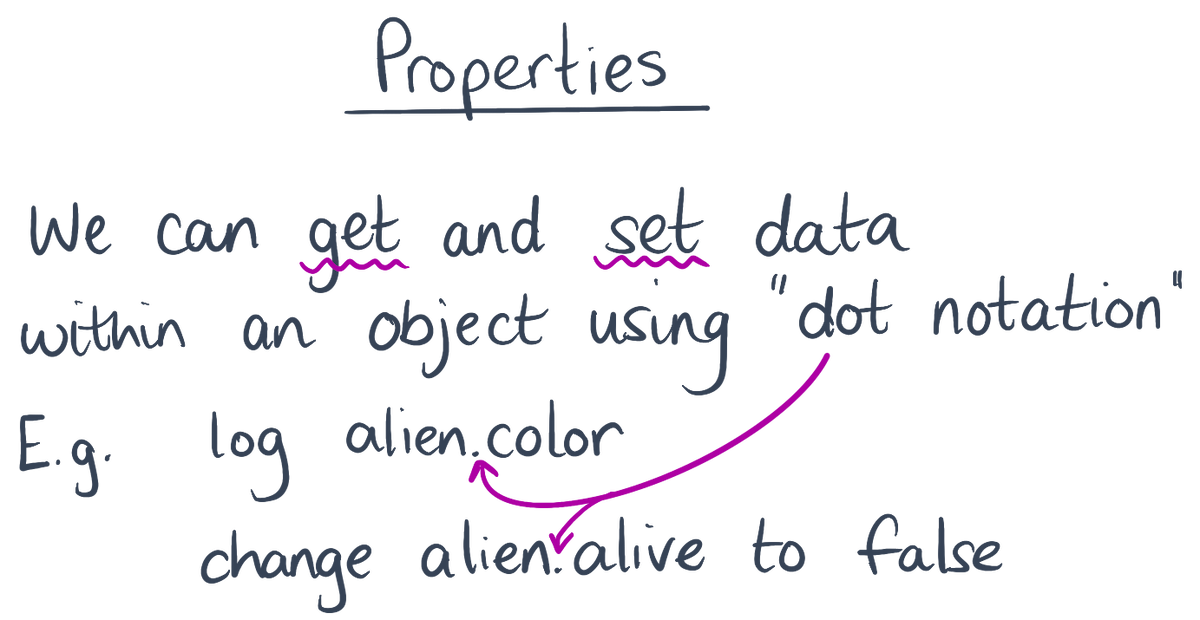 Properties
We can get and set data
within an object using "dot notation"
E.g. log alien.color
change alien.alive to false